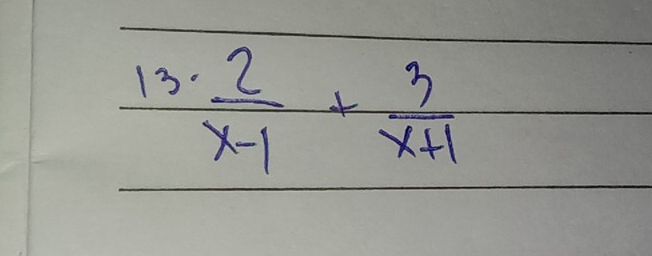 13. 2/(x-1) + 3/(x+1)